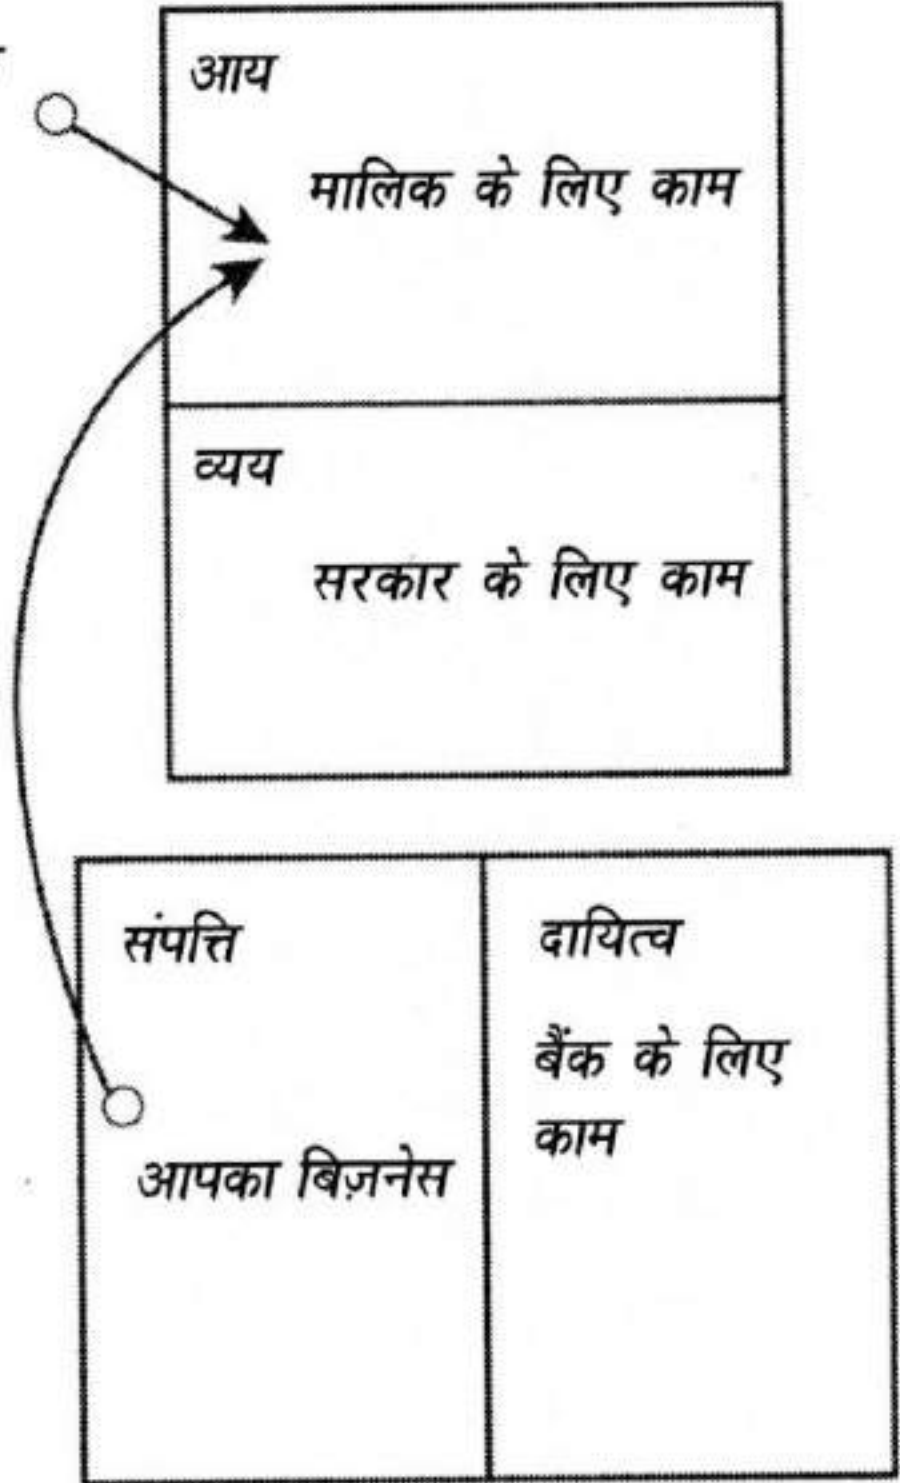 आय
मालिक के लिए काम
व्यय
सरकार के लिए काम
संपत्ति
आपका बिज़नेस
दायित्व
बैंक के लिए
काम